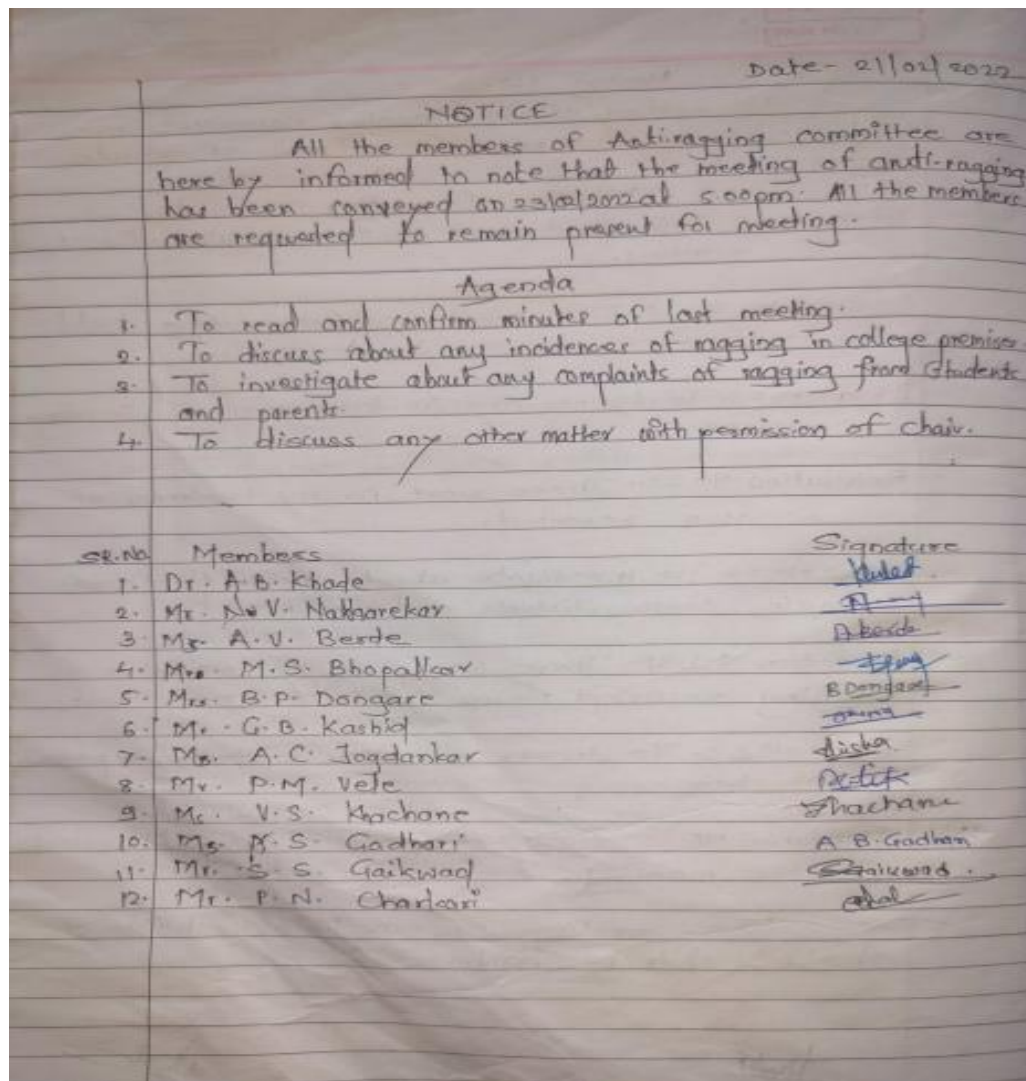 Date- 21/02/2022
NOTICE
All the members of Anti-ragging committee are
here by informed to note that the meeting of anti-ragging
has been conveyed on 23/02/2022 at 5.00pm. All the members
are requested to remain present for meeting.
Agenda
1. To read and confirm minutes of last meeting.
2. To discuss about any incidences of ragging in college premises.
3. To investigate about any complaints of ragging from students
and parents.
4. To discuss any other matter with permission of chair.
SR.No Members Signature
1. Dr. A.B. Khade
2. Mr. N.V. Nakharekar
3. Mr. A.V. Berde A.berde
4. Mrs. M.S. Bhopalkar
5. Mrs. B.P. Dongare B Dongare
6. Mr. G.B. Kashid
7. Ms. A.C. Jogdankar
8. Mr. P.M. Vele
9. Mr. V.S. Khachane Khachane
10. Ms. S. Gadhari A B. Gadhari
11. Mr. S. S. Gaikwad Gaikwad.
12. Mr. P.N.